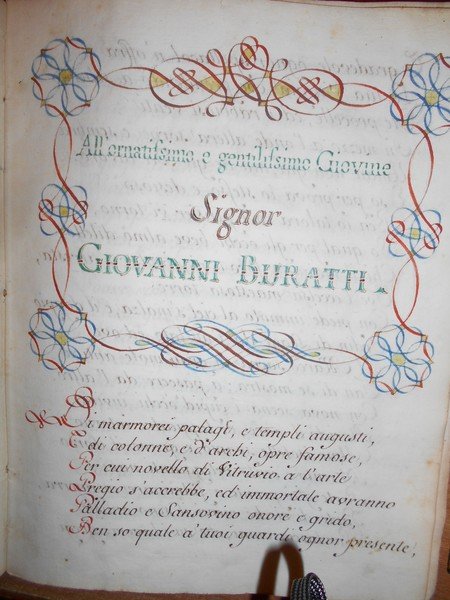 All'ornatissimo e gentilissimo Giovine
Signor
GIOVANNI BURATTI.
Di marmorei palagi, e templi augusti,
E di colonne, e d'archi, opre famose,
Per cui novello di Vitruvio a l'arte
Pregio s'accrebbe, ed immortale avranno
Palladio e Sansovino onore e grido,
Ben so quale a' tuoi guardi ognor presente,